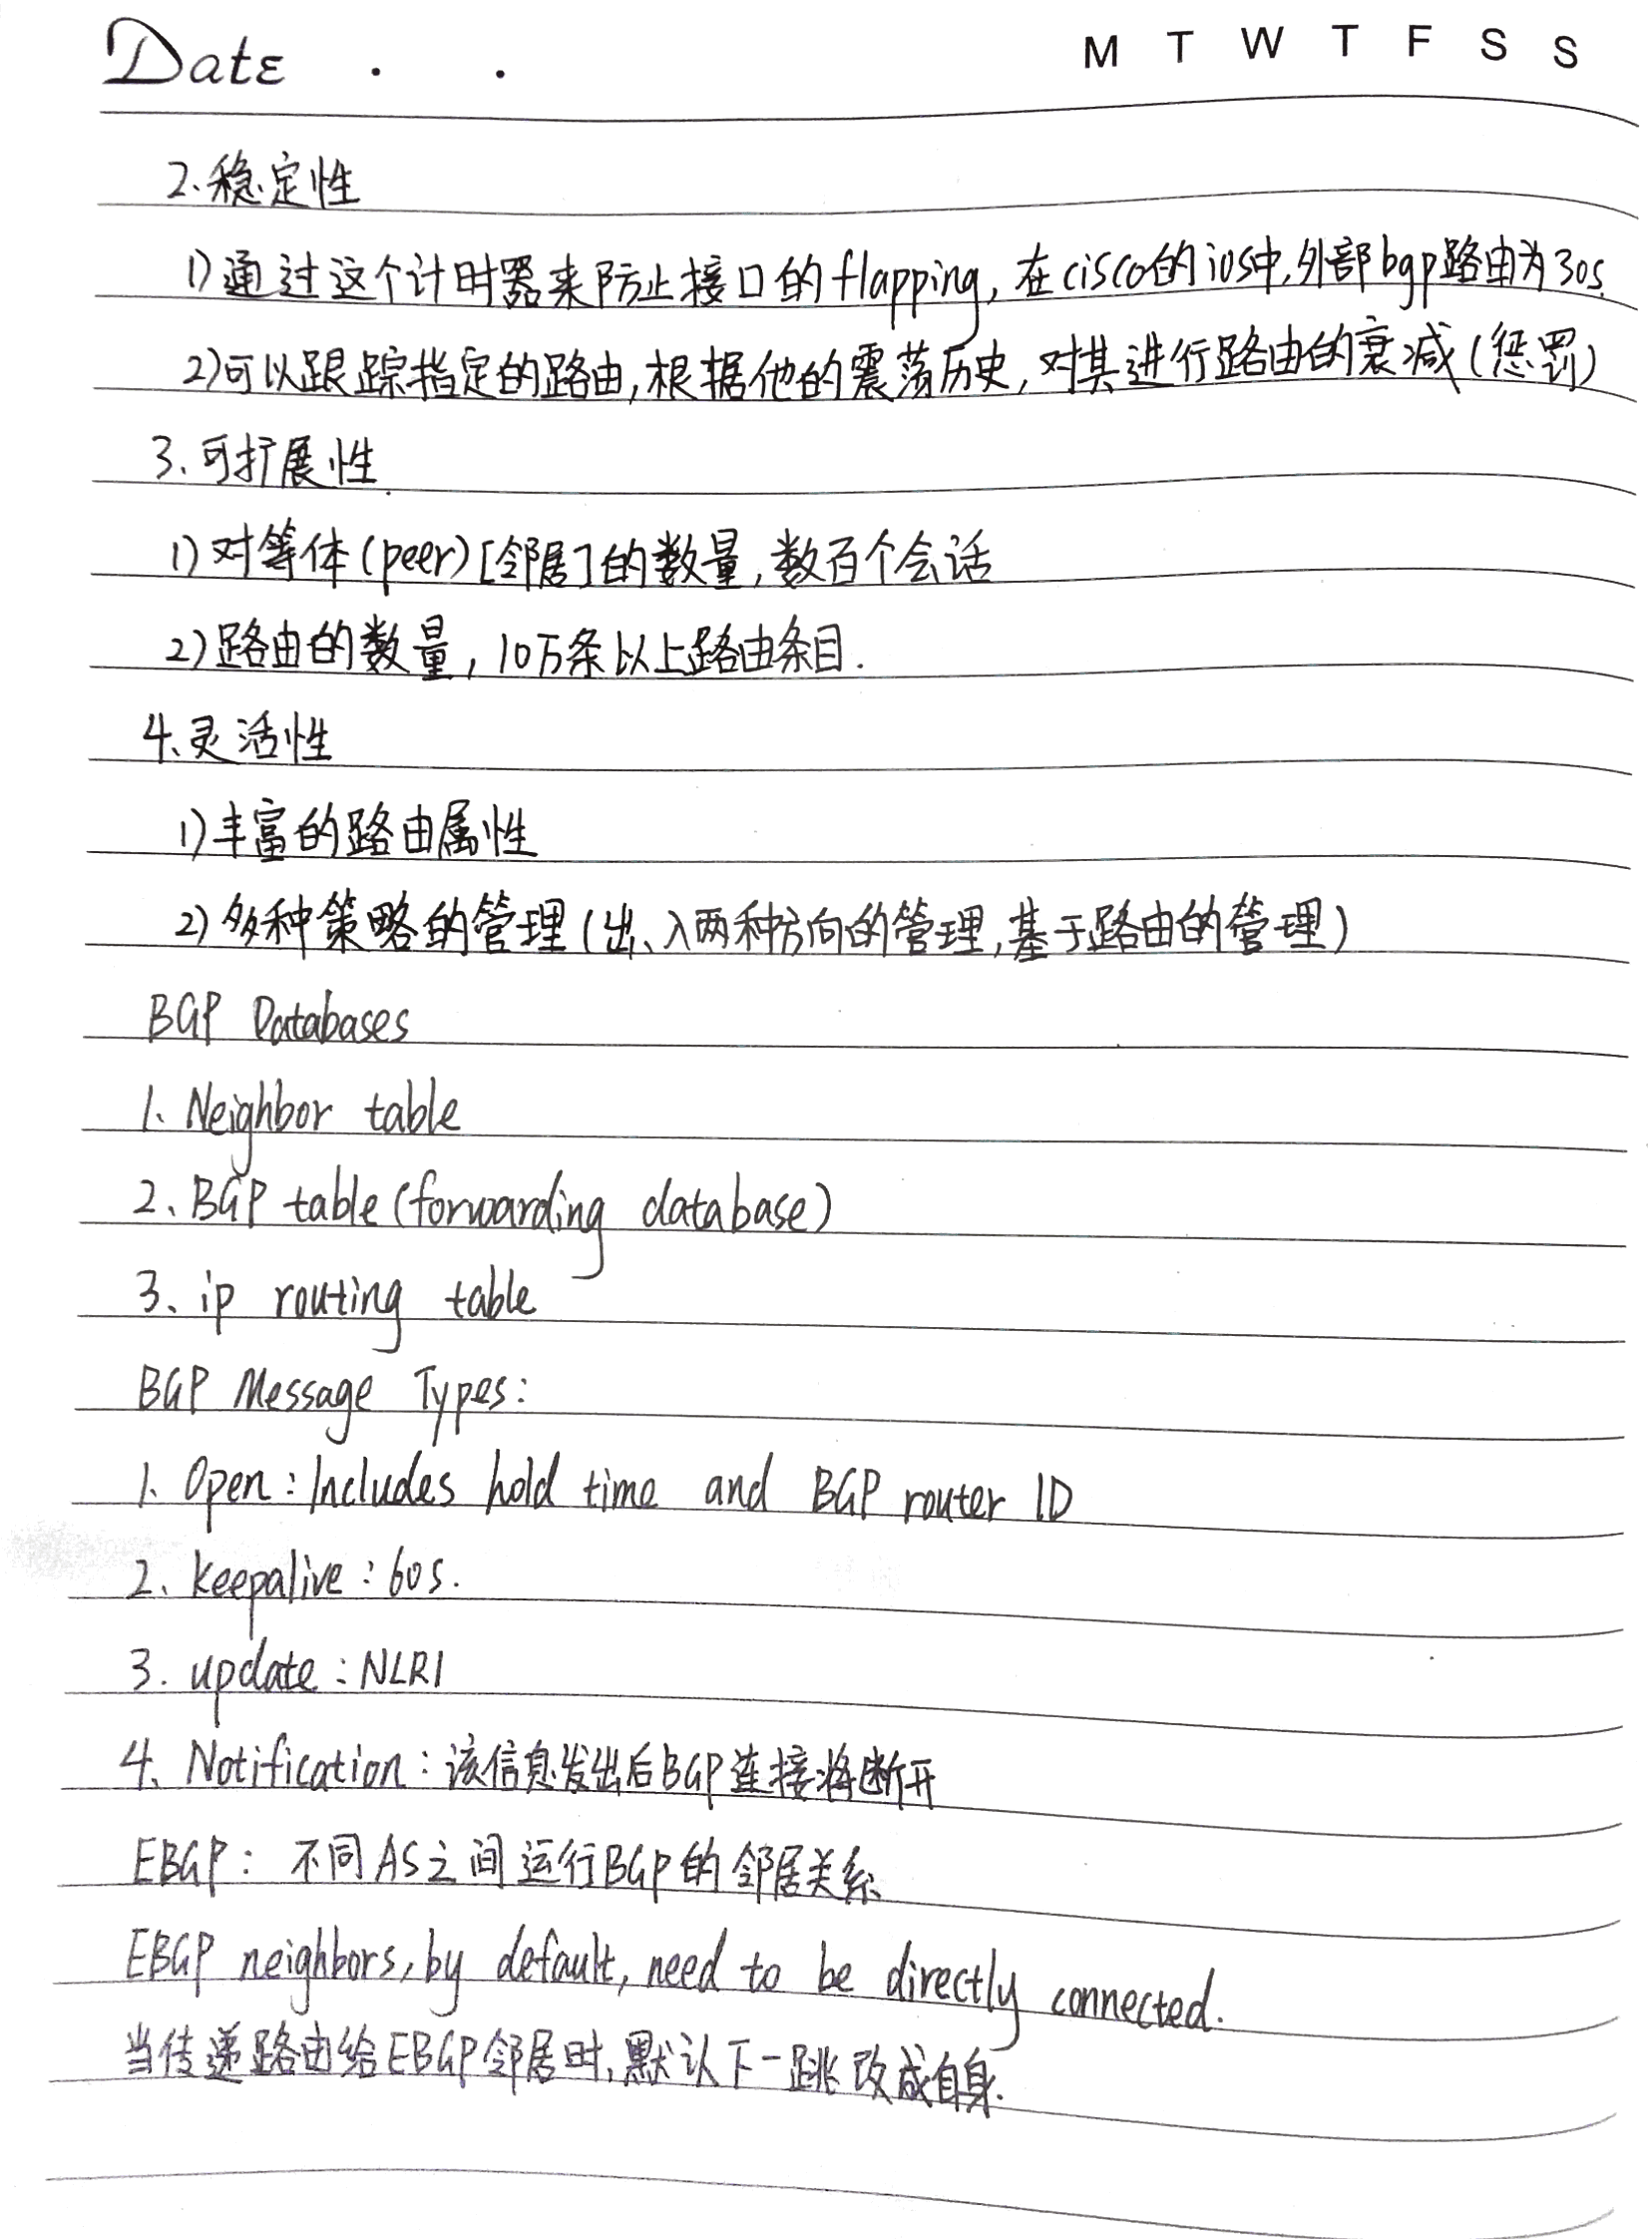 Date . .
M T W T F S S
2、稳定性
1)通过这个计时器来防止接口的flapping,在cisco的ios中,外部bgp路由为30s.
2)可以跟踪指定的路由,根据他的震荡历史,对其进行路由的衰减(惩罚)
3、可扩展性
1)对等体(peer)[邻居]的数量,数百个会话
2)路由的数量,10万条以上路由条目.
4、灵活性
1)丰富的路由属性
2)多种策略的管理(出、入两种方向的管理,基于路由的管理)
BGP Databases
1、Neighbor table
2、BGP table(forwarding database)
3、ip routing table
BGP Message Types:
1、Open:Includes hold time and BGP router ID
2、keepalive:60s.
3. update:NLRI
4、Notification:该信息发出后BGP连接将断开
EBGP: 不同AS之间运行BGP的邻居关系
EBGP neighbors,by default,need to be directly connected.
当传递路由给EBGP邻居时,默认下一跳改成自身.